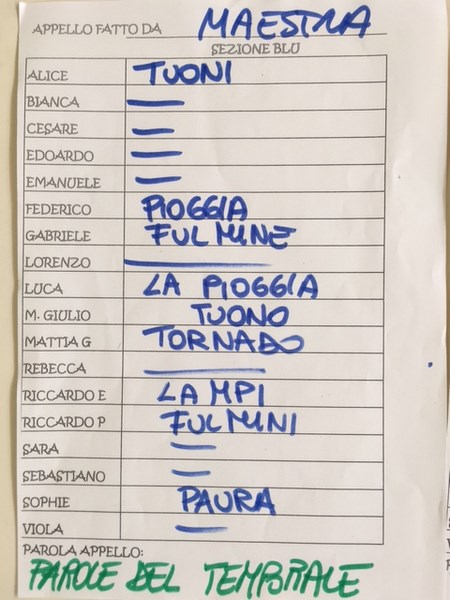 APPELLO FATTO DA MAESTRA
SEZIONE BLU
ALICE TUONI
BIANCA —
CESARE —
EDOARDO —
EMANUELE —
FEDERICO PIOGGIA
GABRIELE FULMINE
LORENZO —
LUCA LA PIOGGIA
M. GIULIO TUONO
MATTIA G TORNADO
REBECCA —
RICCARDO E LAMPI
RICCARDO P FULMINI
SARA —
SEBASTIANO —
SOPHIE PAURA
VIOLA —
PAROLA APPELLO:
PAROLE DEL TEMPORALE